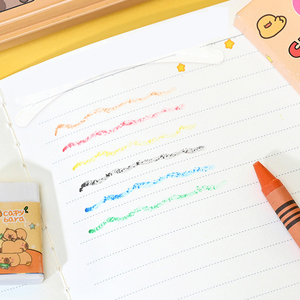 CAPY
bara